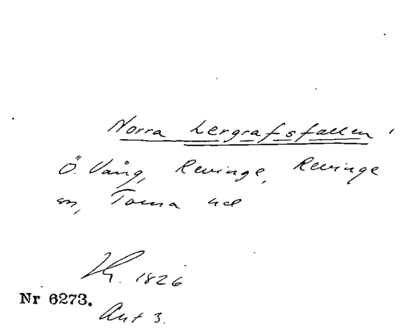 Norra Lergrafsfallen
Ö. Vång, Revinge, Revinge
sn, Torna hd
Lh. 1826
Nr 6273.
Akt 3.